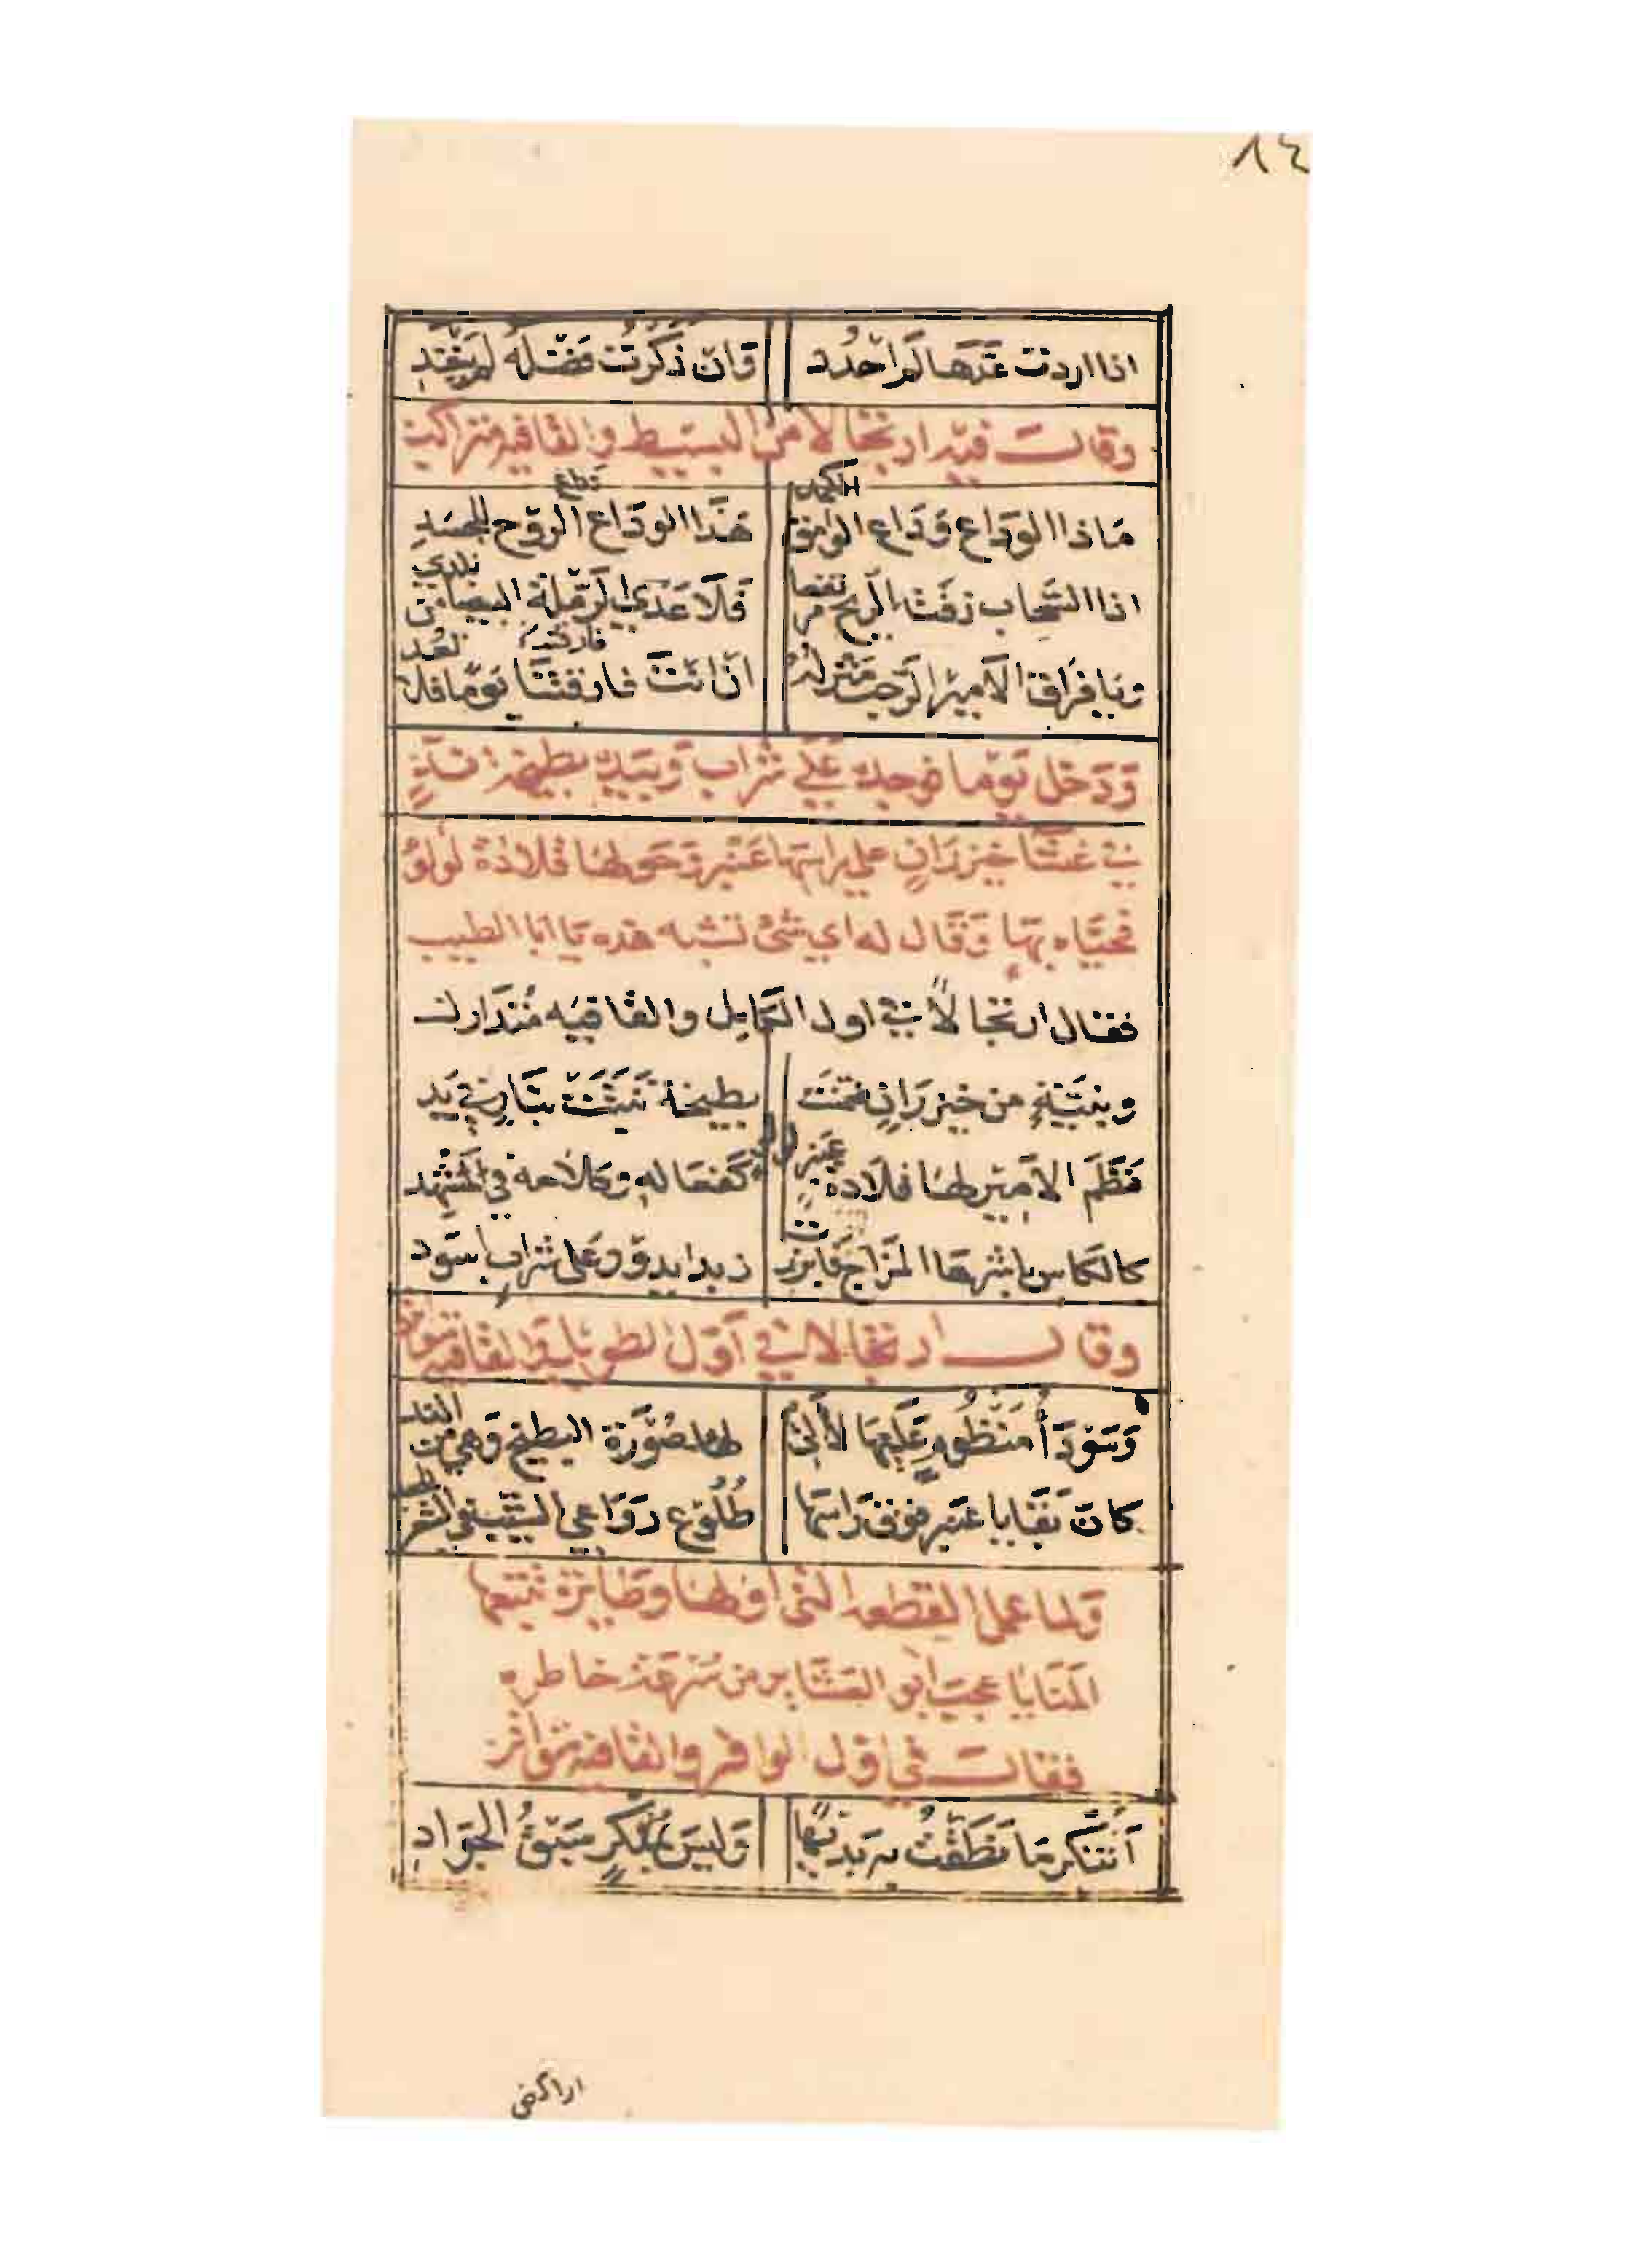 ٨٤
اذا اردت عدها لم احدد وان ذكرت فضله لم ينفد
وقال فيه ارتجالا من البسيط والقافية متراكب
ماذا الوداع وداع الوامق الكمد هذا الوداع وداع الروح للجسد
اذا السحاب زفت الريح مرتفعا فلا عدى الرملة البيضا من بلدي
ويا فراق الامير الرحب منزله ان انت فارقتنا يوما فلا تعد
وَدَخل يوما فوجده على شراب وبيده بطيخة ند
في غشا خيزران على راسها عنبر وحولها قلادة لولو
فحياه بها وقال له اي شئ تشبه هذه يا ابا الطيب
فقال ارتجالا في اول الكامل والقافيه متدارك
وبنية من خيزران ضمنت بطيخة نبتت بنار في يد
نظم الامير لها قلادة لولو كفعاله وكلامه في المشهد
كالكاس باشرها المزاج فابرزت زبدا يدور على شراب اسود
وقال ارتجالا في اول الطويل والقافيه متواتر
وسودا منظوم عليها لالئ لها صورة البطيخ وهي من الند
كان بقايا عنبر فوق راسها طلوع رواعي الشيب في الشعر الجعد
ولما عمل القطعه التى اولها وطايرة تتبعها
المنايا عجب ابو العشاير من سرعة خاطره
فقال في اول الوافر والقافيه متواتر
أتنكر ما نطقت به بديها وليس بمنكر سبق الجواد
اراكض